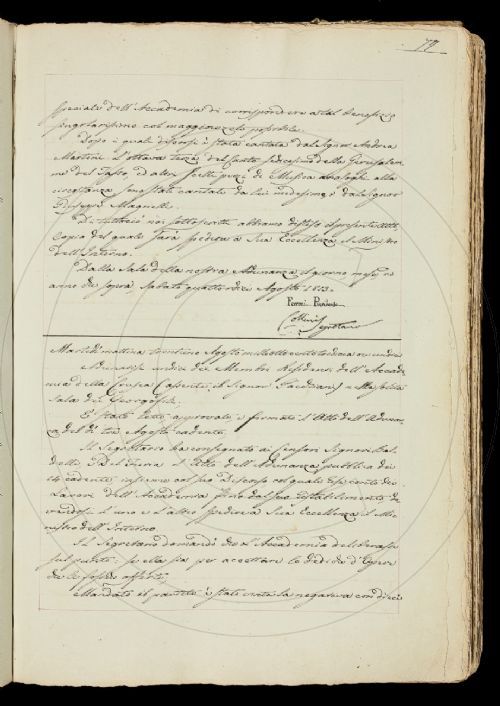 77
speciale dell'Accademia di corrispondere a tal beneficio
singolarissimo col maggiore zelo possibile.
Dopo i quali discorsi è stata cantata dal Signor Andrea
Martini l'ottava terza del Canto sedicesimo della Gerusalem-
me del Tasso, ed altri scelti pezzi di Musica analoghi alla
circostanza sono stati cantati da lui medesimo, e dal Signor
Giuseppe Magnelli.
Di tuttociò noi sottoscritti abbiamo disteso il presente Atto,
Copia del quale sarà spedita a Sua Eccellenza il Ministro
dell'Interno.
Dalla Sala della nostra Adunanza il giorno mese, ed
anno di sopra, Sabato quattordici Agosto 1813.
Ferroni
Collini Segretario
Martedì mattina trentuno Agosto milleottocentotredici
Adunatisi undici dei Membri Residenti dell'Accade-
mia della Crusca (assente il Signor Sacchetti) nella solita
Sala dei Georgofili.
È stato letto, approvato, e firmato l'Atto dell'Adunan-
za del dì tre Agosto cadente.
Il Segretario ha consegnato ai Censori Signori
e Del Furia l'Atto dell'Adunanza pubblica dei
14 cadente, insieme col suo Discorso col quale espose i
Lavori dell'Accademia fino dal suo ristabilimento,
l'uno e l'altro spedire a Sua Eccellenza il Mi-
nistro dell'Interno.
Il Segretario domandò che l'Accademia deliberasse
sul punto: se ella sia per accettare le dediche d'Opere
che le fossero offerte.
Mandato il partito è stata vinta la negativa con dieci